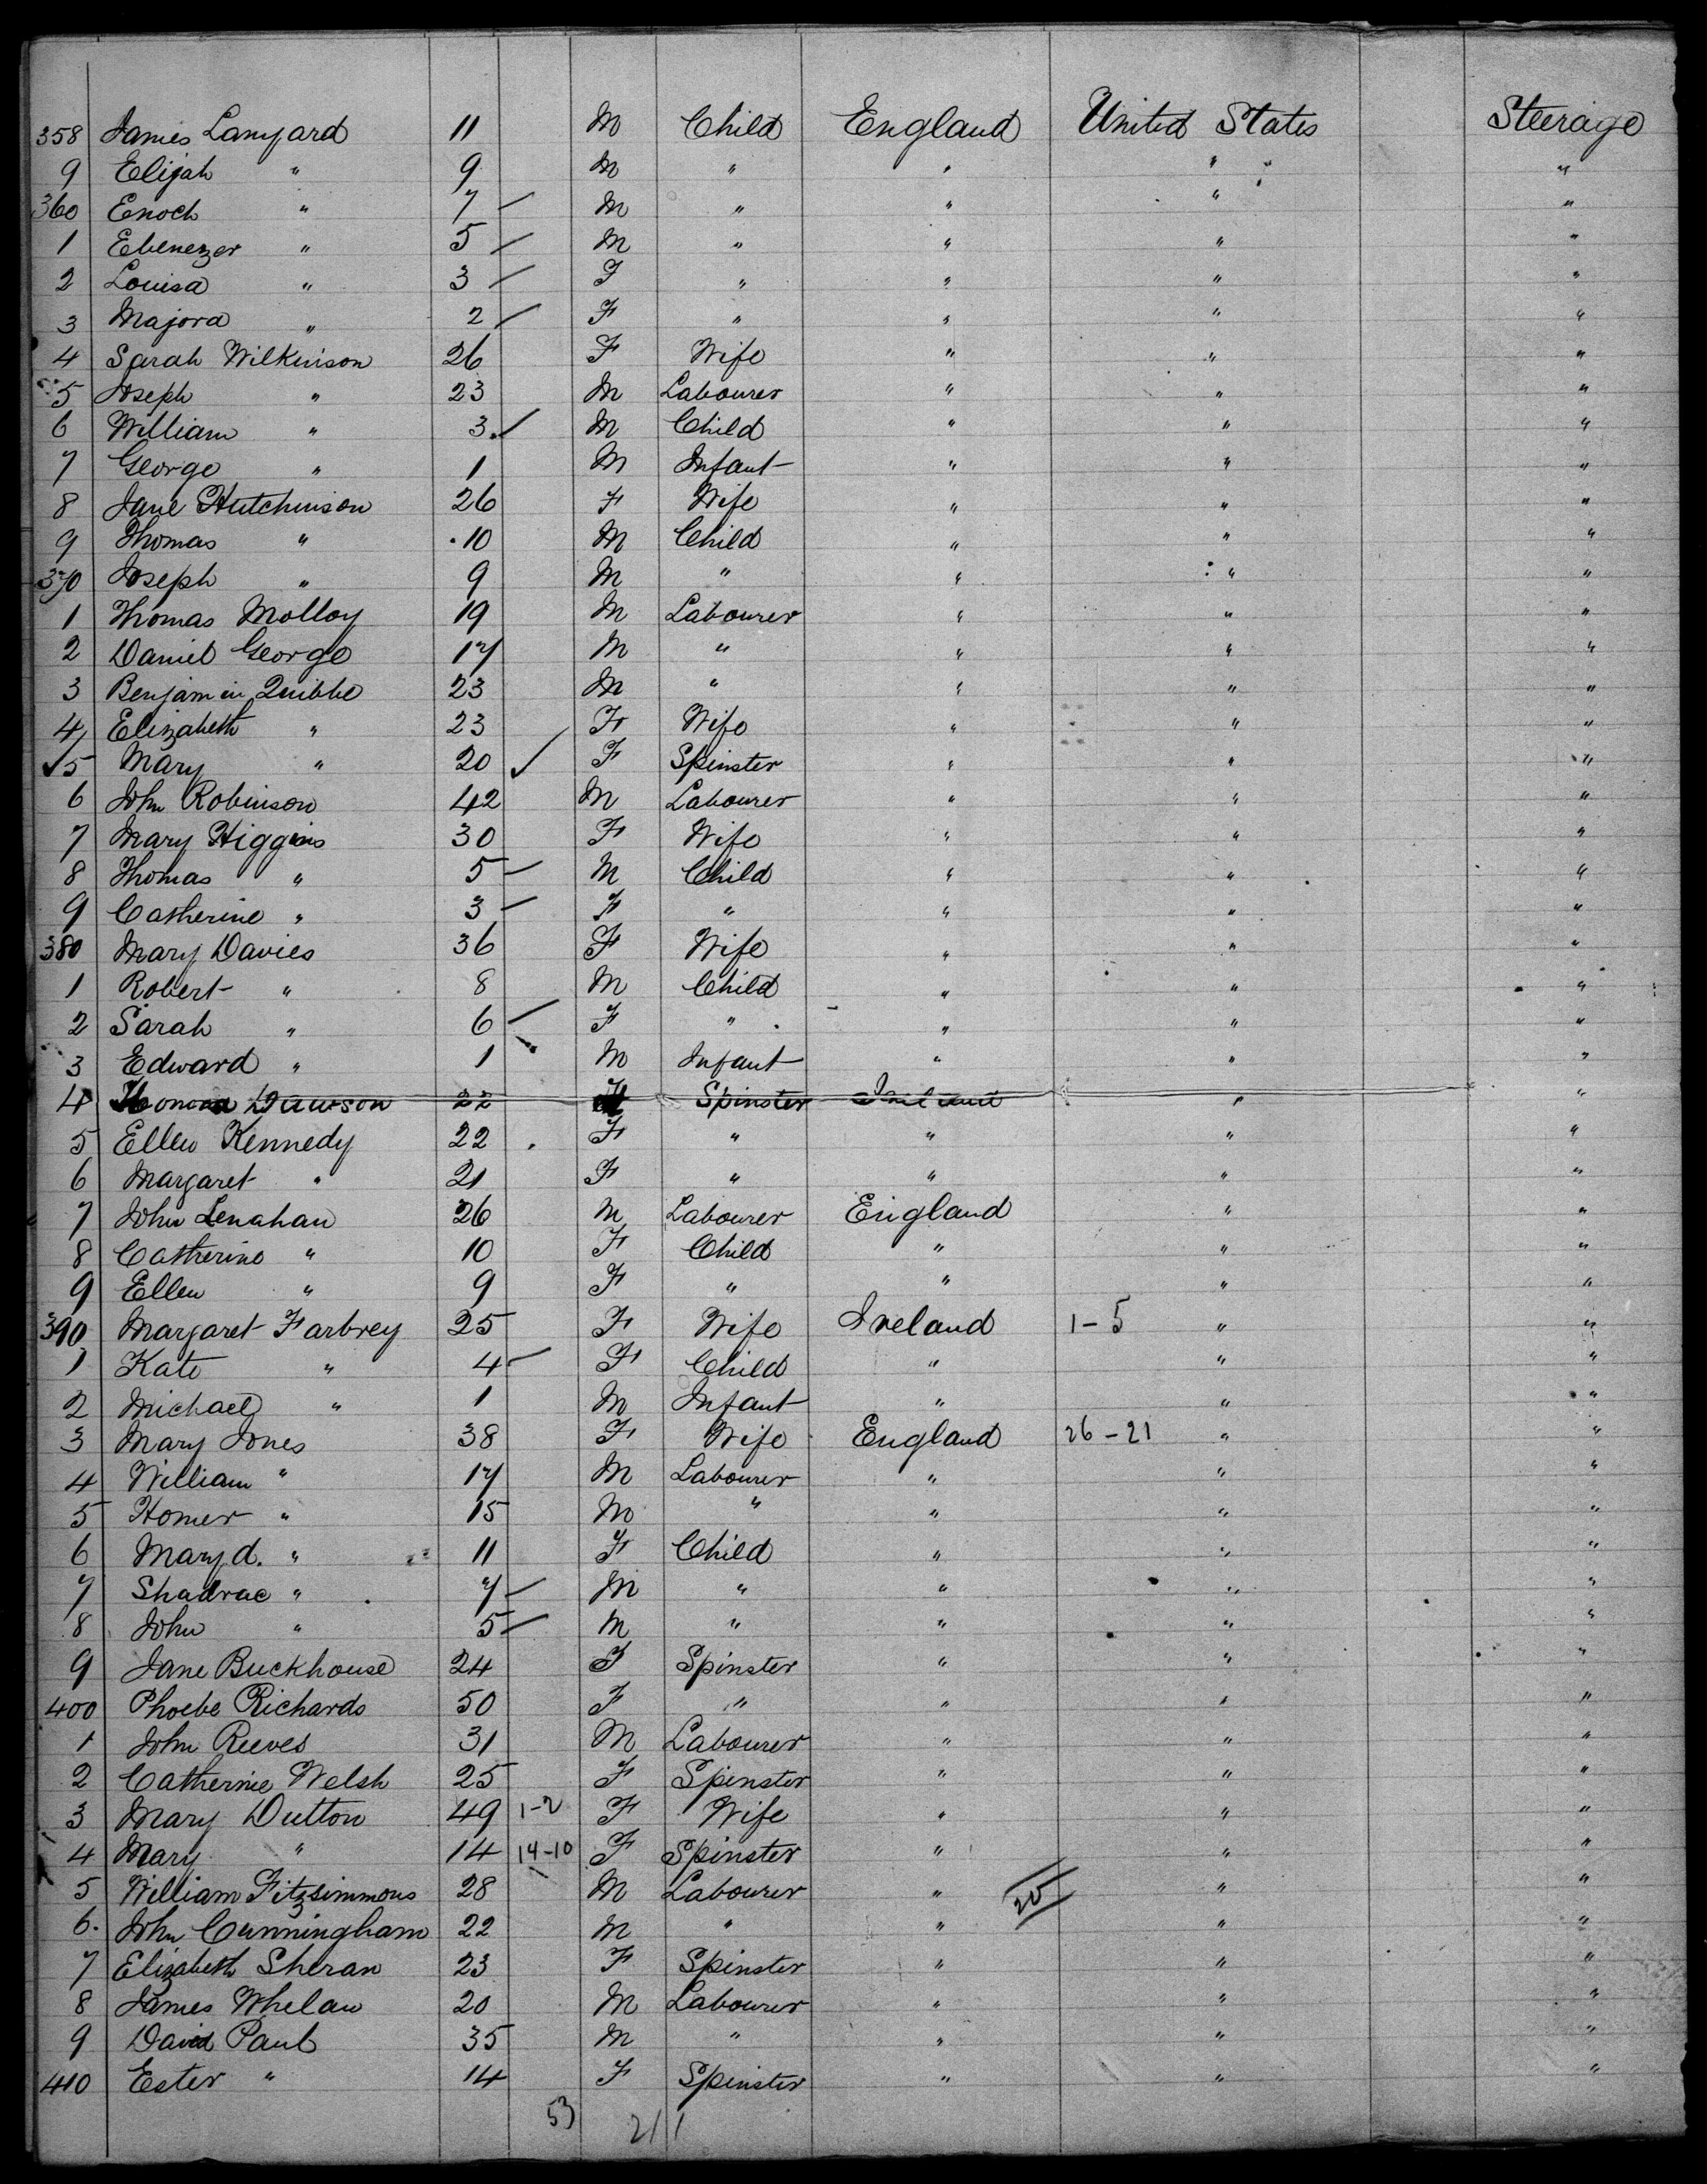 358 James Lanyard 11 M Child England United States Steerage
9 Elijah " 9 M " " " "
360 Enoch " 7 – M " " " "
1 Ebenezer " 5 – M " " " "
2 Louisa " 3 – F " " " "
3 Majora " 2 – F " " " "
4 Sarah Wilkinson 26 F Wife " " "
5 Joseph " 23 M Labourer " " "
6 William " 3 ✓ M Child " " "
7 George " 1 M Infant " " "
8 Jane Hutchinson 26 F Wife " " "
9 Thomas " 10 M Child " " "
370 Joseph " 9 M " " " "
1 Thomas Molloy 19 M Labourer " " "
2 Daniel George 17 M " " " "
3 Benjamin Quibbe 23 M " " " "
4 Elizabeth " 23 F Wife " " "
✓5 Mary " 20 ✓ F Spinster " " "
6 John Robinson 42 M Labourer " " "
7 Mary Higgins 30 F Wife " " "
8 Thomas " 5 – M Child " " "
9 Catherine " 3 – F " " " "
380 Mary Davies 36 F Wife " " "
1 Robert " 8 M Child " " "
2 Sarah " 6 – F " " " "
3 Edward " 1 M Infant " " "
4 Honora Dawson 22 Spinster " "
5 Ellen Kennedy 22 F " " " "
6 Margaret " 21 F " " " "
7 John Lenahan 26 M Labourer England " "
8 Catherine " 10 F Child " " "
9 Ellen " 9 F " " " "
390 Margaret Farbrey 25 F Wife Ireland 1-5 " "
1 Kate " 4 – F Child " " "
2 Michael " 1 M Infant " " "
3 Mary Jones 38 F Wife England 26-21 " "
4 William " 17 M Labourer " " "
5 Homer " 15 M " " " "
6 Mary d. " 11 F Child " " "
7 Shadrac " 7 – M " " " "
8 John " 5 – M " " " "
9 Jane Buckhouse 24 F Spinster " " "
400 Phoebe Richards 50 F " " " "
1 John Reeves 31 M Labourer " " "
2 Catherine Welsh 25 F Spinster " " "
3 Mary Dutton 49 1-2 F Wife " " "
4 Mary " 14 14-10 F Spinster " " "
5 William Fitzsimmons 28 M Labourer " 20 " "
6. John Cunningham 22 M " " " "
7 Elizabeth Sheran 23 F Spinster " " "
8 James Whelan 20 M Labourer " " "
9 David Paul 35 M " " " "
410 Ester " 14 F Spinster " " "
53 2/1